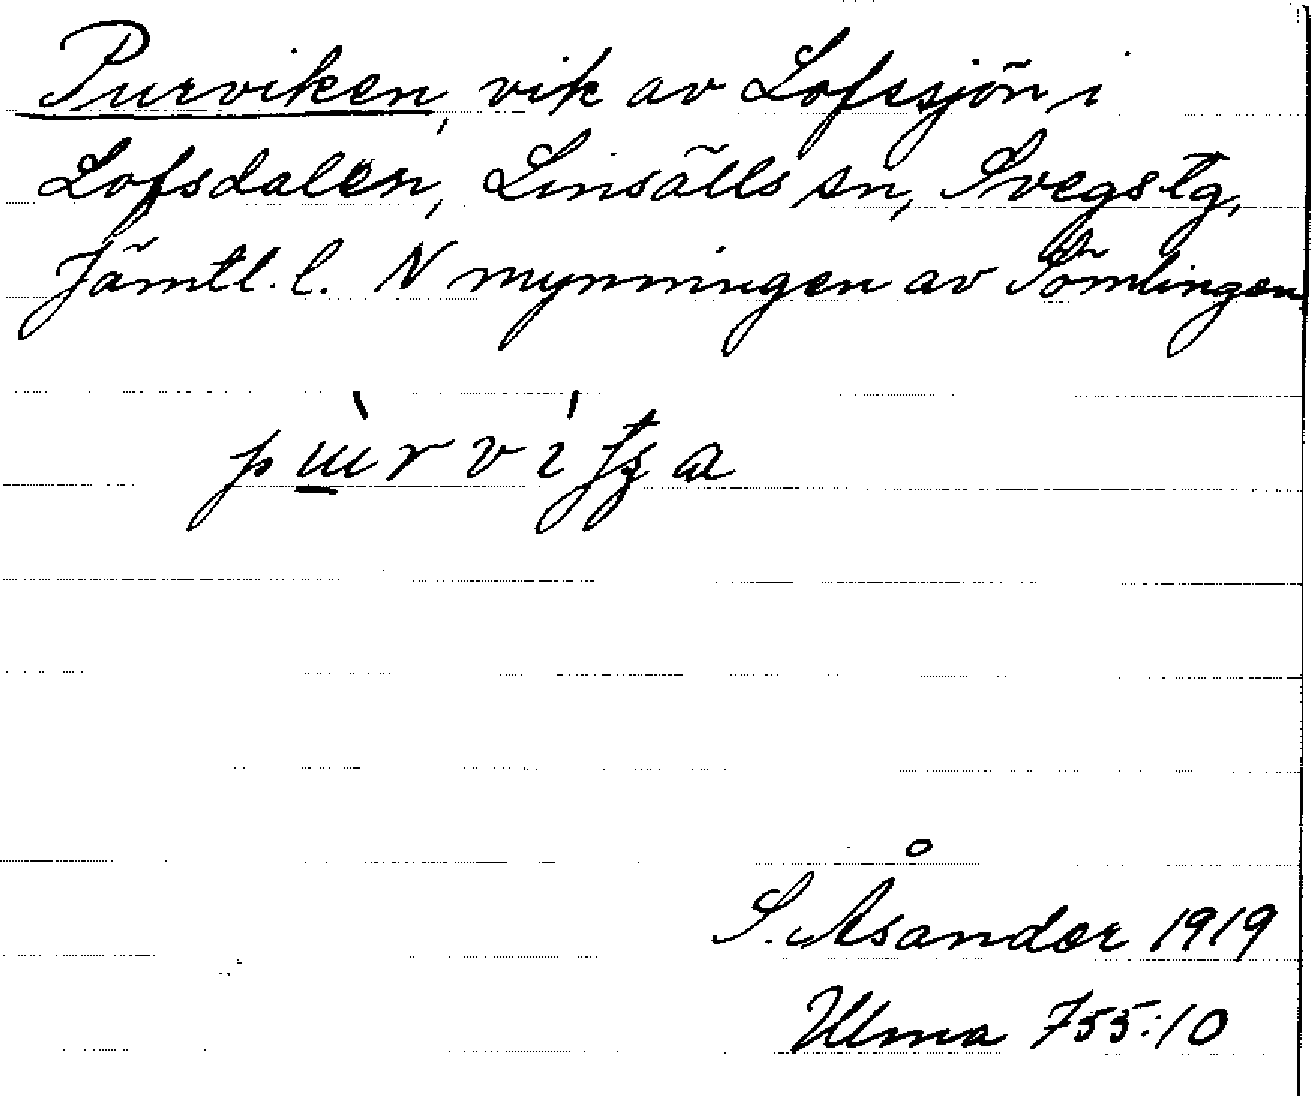 Purviken, vik av Lofssjön i
Lofsdalen, Linsälls sn, Svegs tg,
Jämtl. l. N mynningen av Tömlingen
S. Åsander 1919
Ulma 755:10